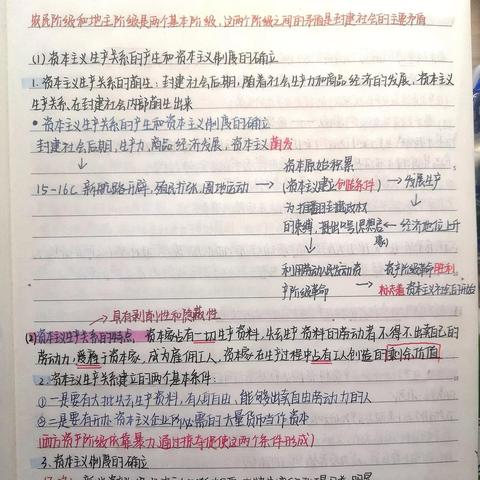 农民阶级和地主阶级是两个基本阶级，这两个阶级之间的矛盾是封建社会的主要矛盾
(1) 资本主义生产关系的产生和资本主义制度的确立
1. 资本主义生产关系的萌生：封建社会后期，随着社会生产力和商品经济的发展，资本主义
生产关系在封建社会内部萌生出来
• 资本主义生产关系的产生和资本主义制度的确立
封建社会后期，生产力、商品经济发展，资本主义萌发
↓
资本原始积累
15-16C 新航路开辟，殖民扩张，圈地运动 → (资本主义建立创造条件) → 发展生产
为推翻封建政权
的束缚，提出口号(思想启 ← 经济地位上升
蒙)
↓
利用劳动人民运动资 资产阶级革命胜利，
产阶级革命 → 标志着资本主义社会的开始
→ 具有剥削性和隐蔽性
(2) 资本主义生产关系的特点 资本家占有一切生产资料，失去生产资料的劳动者不得不出卖自己的
劳动力，受雇于资本家，成为雇佣工人，资本家在生产过程中占有工人创造的剩余价值
2. 资本主义生产关系建立的两个基本条件：
① 一是要有大批失去生产资料，有人身自由、能够出卖自由劳动力的人
② 二是要有开办资本主义企业所必需的大量货币当作资本
(西方资产阶级依靠暴力，通过掠夺促使这两个条件形成)
3. 资本主义制度的确立